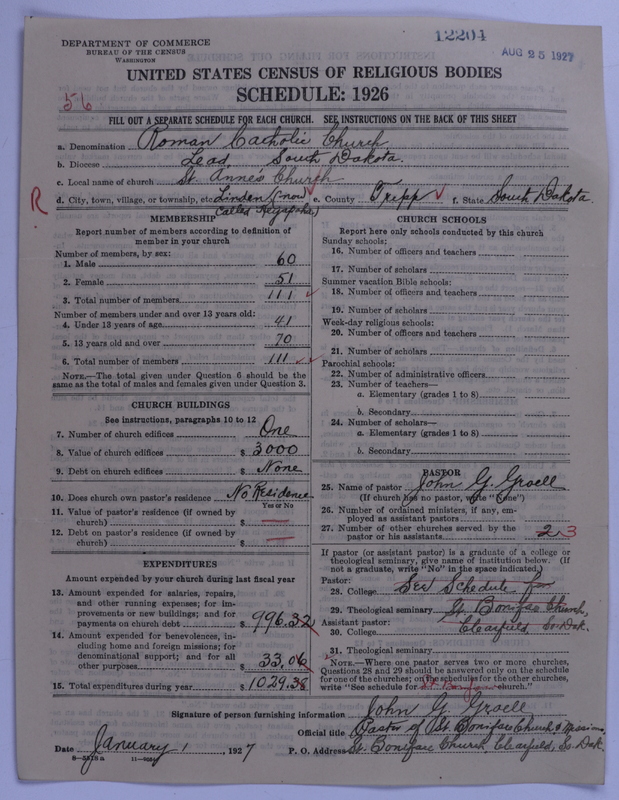 12204
AUG 25 1927
DEPARTMENT OF COMMERCE
BUREAU OF THE CENSUS
WASHINGTON
UNITED STATES CENSUS OF RELIGIOUS BODIES
SCHEDULE: 1926
56
FILL OUT A SEPARATE SCHEDULE FOR EACH CHURCH. SEE INSTRUCTIONS ON THE BACK OF THIS SHEET
a. Denomination Roman Catholic Church
b. Diocese Lead, South Dakota.
c. Local name of church St. Anne's Church
R d. City, town, village, or township, etc. Linden (now called Keyapaha) e. County Tripp f. State South Dakota.
MEMBERSHIP
Report number of members according to definition of member in your church
Number of members, by sex:
1. Male 60
2. Female 51
3. Total number of members 111
Number of members under and over 13 years old:
4. Under 13 years of age 41
5. 13 years old and over 70
6. Total number of members 111
NOTE.—The total given under Question 6 should be the same as the total of males and females given under Question 3.
CHURCH BUILDINGS
See instructions, paragraphs 10 to 12
7. Number of church edifices One
8. Value of church edifices $ 3000
9. Debt on church edifices $ None
10. Does church own pastor's residence No Residence
Yes or No
11. Value of pastor's residence (if owned by church) $ —
12. Debt on pastor's residence (if owned by church) $ —
EXPENDITURES
Amount expended by your church during last fiscal year
13. Amount expended for salaries, repairs, and other running expenses; for improvements or new buildings; and for payments on church debt $ 996.32
14. Amount expended for benevolences, including home and foreign missions; for denominational support; and for all other purposes $ 33.06
15. Total expenditures during year $ 1029.38
CHURCH SCHOOLS
Report here only schools conducted by this church
Sunday schools:
16. Number of officers and teachers
17. Number of scholars
Summer vacation Bible schools:
18. Number of officers and teachers
19. Number of scholars
Week-day religious schools:
20. Number of officers and teachers
21. Number of scholars
Parochial schools:
22. Number of administrative officers
23. Number of teachers—
a. Elementary (grades 1 to 8)
b. Secondary
24. Number of scholars—
a. Elementary (grades 1 to 8)
b. Secondary
PASTOR
25. Name of pastor John G. Groell
(If church has no pastor, write "None")
26. Number of ordained ministers, if any, employed as assistant pastors
27. Number of other churches served by the pastor or his assistants 2 3
If pastor (or assistant pastor) is a graduate of a college or theological seminary, give name of institution below. (If not a graduate, write "No" in the space indicated.)
Pastor:
28. College See Schedule for
29. Theological seminary St. Boniface Church,
Assistant pastor:
30. College Clearfield, So. Dak.
31. Theological seminary
NOTE.—Where one pastor serves two or more churches, Questions 28 and 29 should be answered only on the schedule for one of the churches; on the schedules for the other churches, write "See schedule for St. Boniface church."
Signature of person furnishing information John G. Groell
Official title Pastor of St. Boniface Church & Missions
Date January 1, 1927 P. O. Address St. Boniface Church, Clearfield, So. Dak.